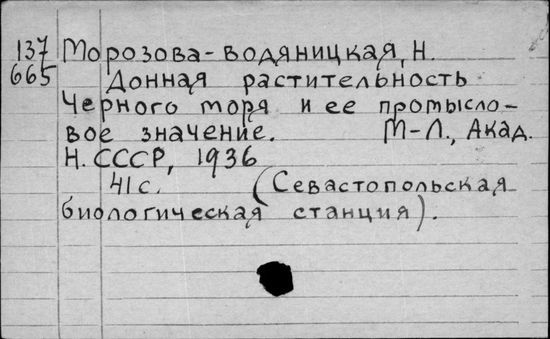 137 Морозова-водяницкая, Н.
665 Донная растительность
Черного моря и ее промысло-
вое значение. М-Л., Акад.
Н. СССР, 1936
41 с. (Севастопольская
биологическая станция).